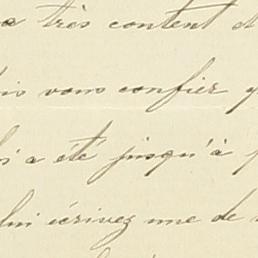 a très content et
is vous confier q
i a été jusqu'à p
lui écrivez une de